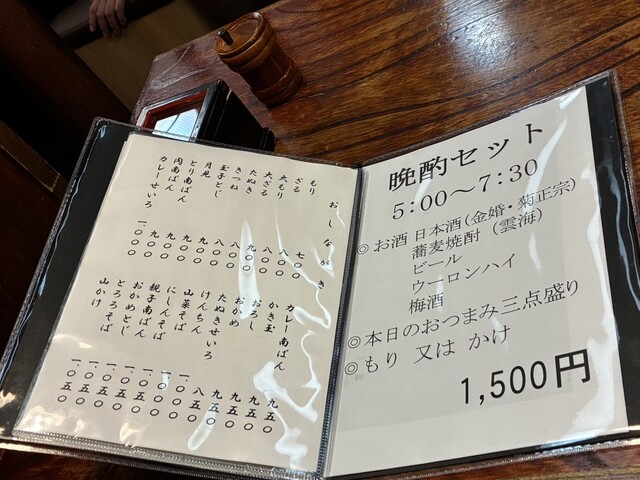 おしながき
もり 七〇〇
ざる 八〇〇
大もり 八〇〇
大ざる 九〇〇
たぬき 八〇〇
きつね 八〇〇
玉子とじ 九〇〇
月見 九〇〇
とり南ばん 九〇〇
肉南ばん 九〇〇
カレーせいろ 一、〇〇〇
カレー南ばん 九五〇
かき玉 九五〇
おろし
おかめ
たぬきせいろ
けんちん
山菜そば
にしんそば
親子南ばん
おかめとじ
とろろそば
山かけ
晩酌セット
5:00～7:30
◎お酒 日本酒(金婚・菊正宗)
蕎麦焼酎（雲海)
ビール
ウーロンハイ
梅酒
◎本日のおつまみ三点盛り
◎もり 又は かけ
1,500円